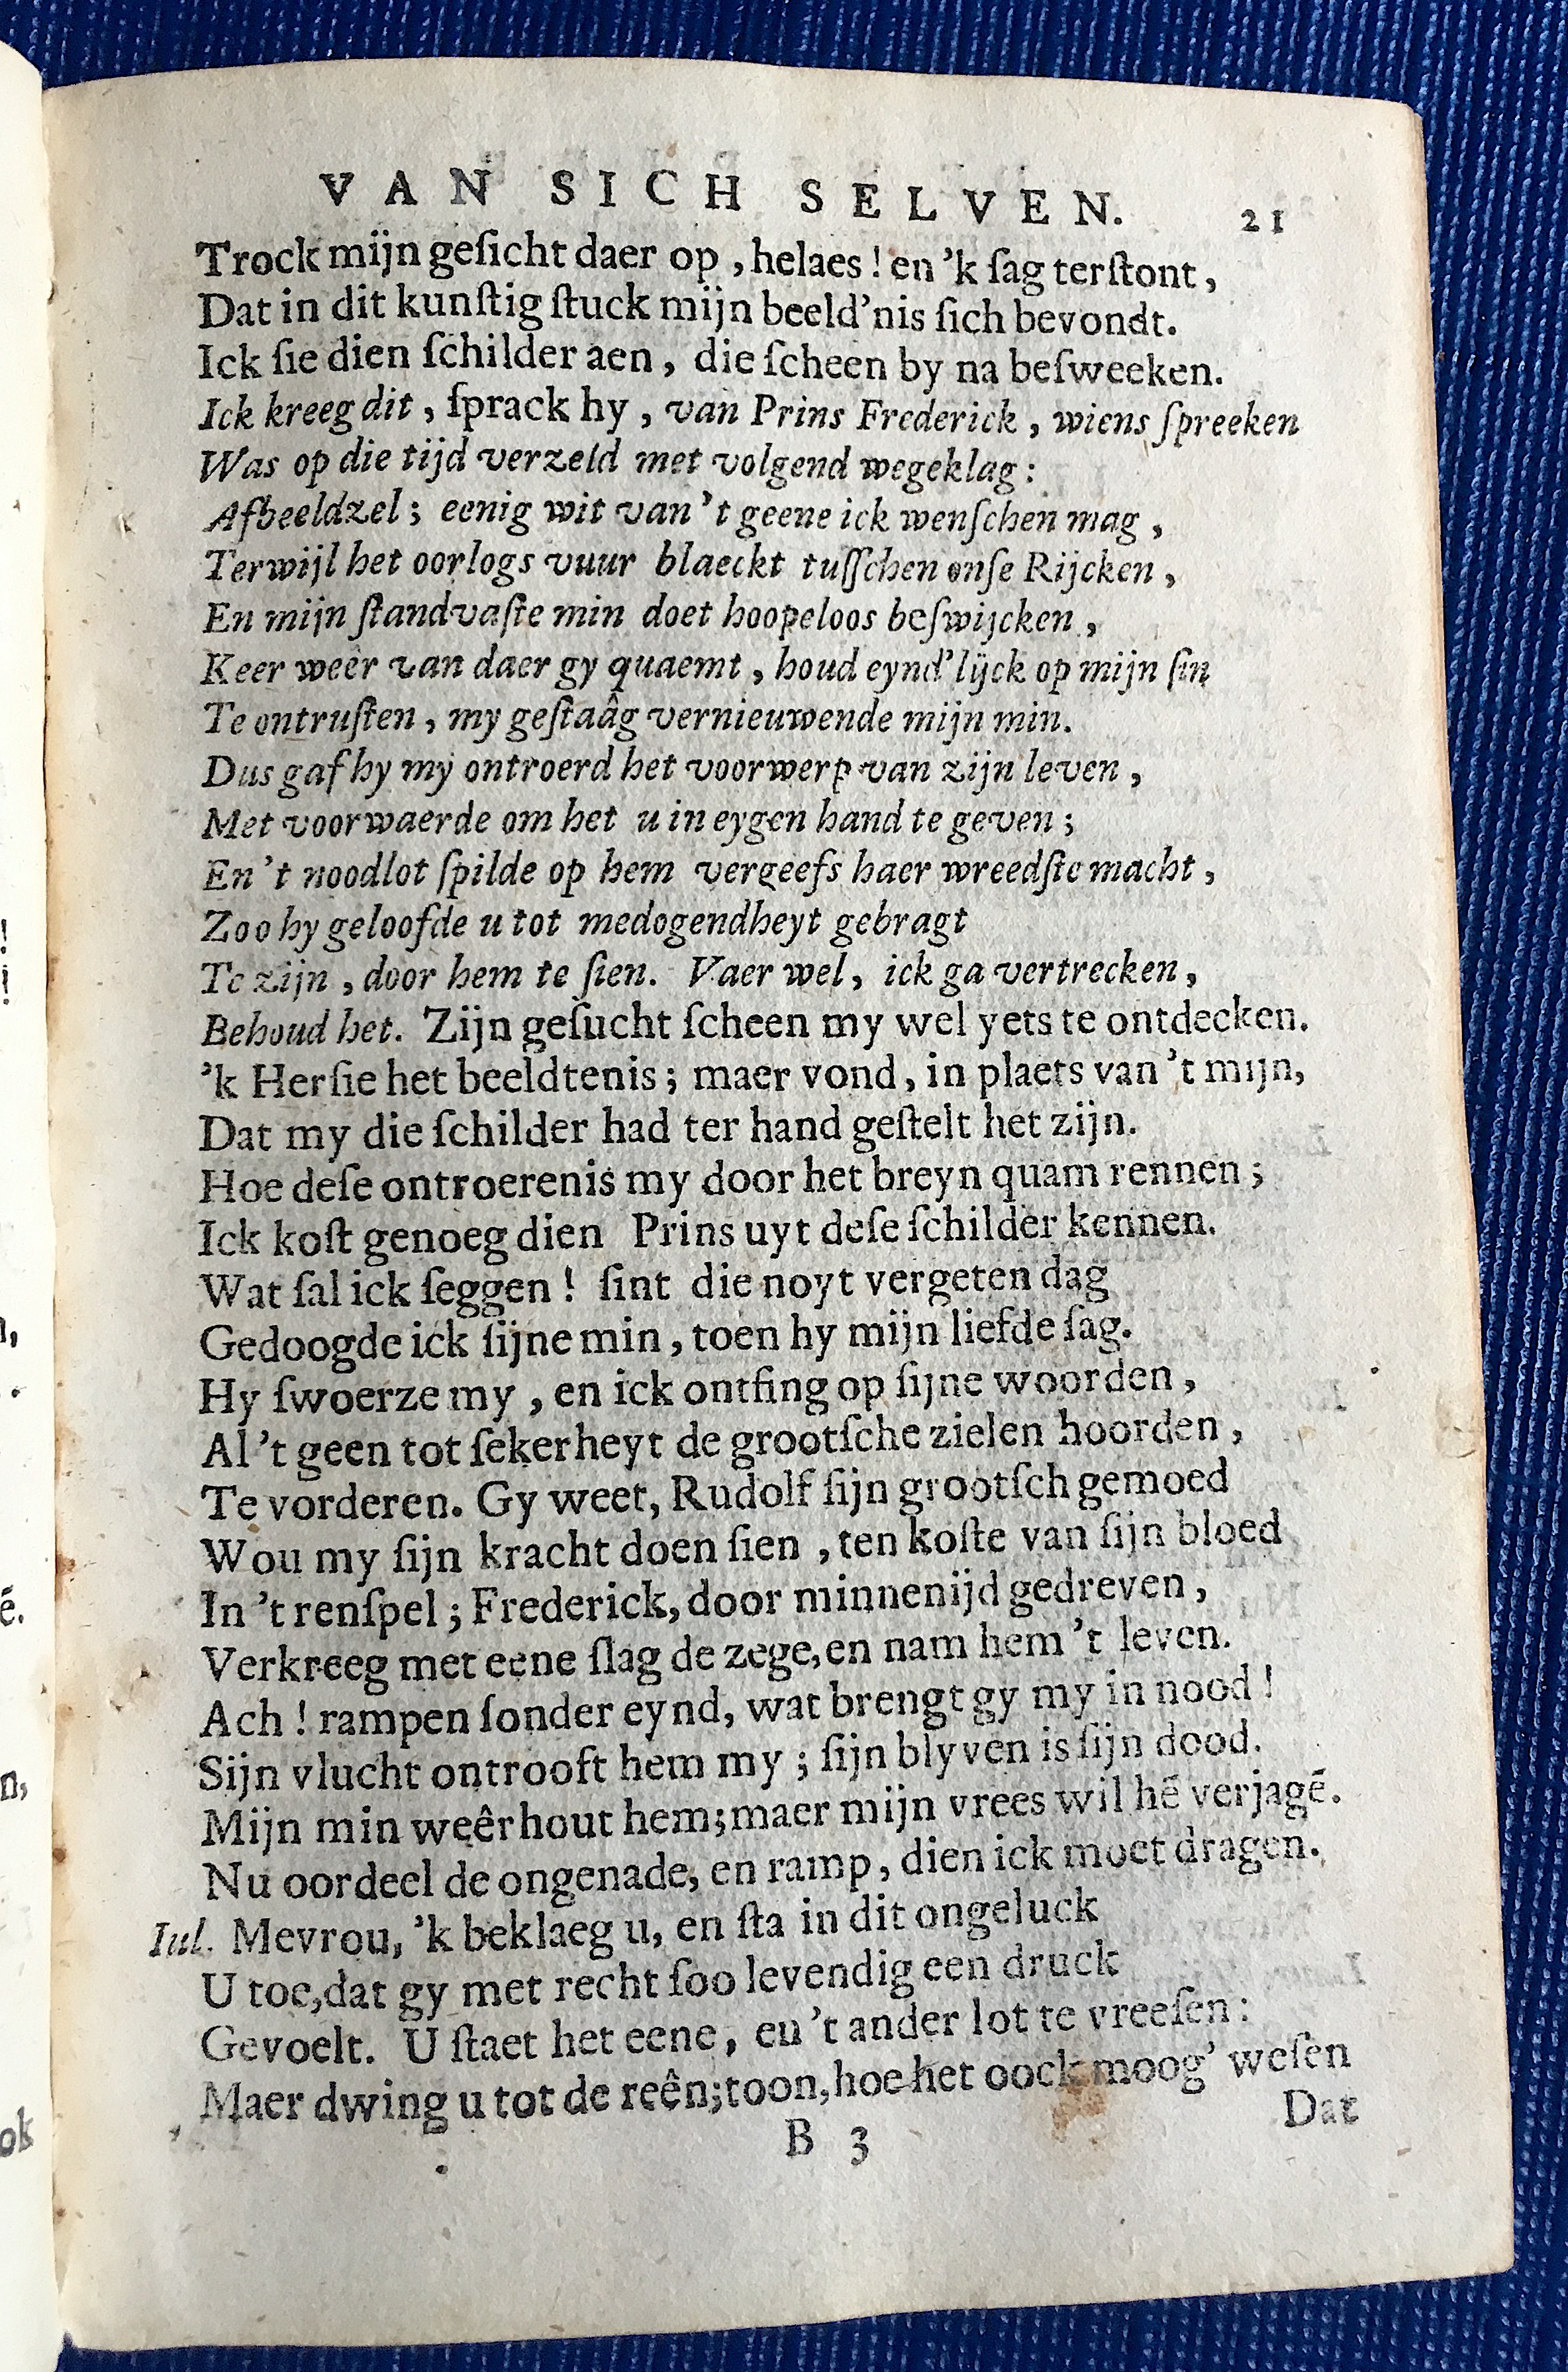 VAN SICH SELVEN. 21
Trock mijn geſicht daer op , helaes ! en 'k ſag terſtont ,
Dat in dit kunſtig ſtuck mijn beeld'nis ſich bevondt.
Ick ſie dien ſchilder aen , die ſcheen by na beſweeken.
Ick kreeg dit , ſprack hy , van Prins Frederick , wiens ſpreeken
Was op die tijd verzeld met volgend wegeklag :
Afbeeldzel ; eenig wit van 't geene ick wenſchen mag ,
Terwijl het oorlogs vuur blaeckt tuſſchen onſe Rijcken ,
En mijn ſtandvaſte min doet hoopeloos beſwijcken ,
Keer weer van daer gy quaemt , houd eynd'lijck op mijn ſin
Te ontruſten , my geſtaâg vernieuwende mijn min.
Dus gaf hy my ontroerd het voorwerp van zijn leven ,
Met voorwaerde om het u in eygen hand te geven ;
En 't noodlot ſpilde op hem vergeefs haer wreedſte macht ,
Zoo hy geloofde u tot medogendheyt gebragt
Te zijn , door hem te ſien. Vaer wel , ick ga vertrecken ,
Behoud het. Zijn geſucht ſcheen my wel yets te ontdecken.
'k Herſie het beeldtenis ; maer vond , in plaets van 't mijn,
Dat my die ſchilder had ter hand geſtelt het zijn.
Hoe deſe ontroerenis my door het breyn quam rennen ;
Ick koſt genoeg dien Prins uyt deſe ſchilder kennen.
Wat ſal ick ſeggen ! ſint die noyt vergeten dag
Gedoogde ick ſijne min , toen hy mijn liefde ſag.
Hy ſwoerze my , en ick ontfing op ſijne woorden ,
Al 't geen tot ſekerheyt de grootſche zielen hoorden ,
Te vorderen. Gy weet, Rudolf ſijn grootſch gemoed
Wou my ſijn kracht doen ſien , ten koſte van ſijn bloed
In 't renſpel ; Frederick, door minnenijd gedreven ,
Verkreeg met eene ſlag de zege, en nam hem 't leven.
Ach ! rampen ſonder eynd, wat brengt gy my in nood !
Sijn vlucht ontrooft hem my ; ſijn blyven is ſijn dood.
Mijn min weêrhout hem; maer mijn vrees wil hē verjagē.
Nu oordeel de ongenade, en ramp , dien ick moet dragen.
Iul. Mevrou, 'k beklaeg u, en ſta in dit ongeluck
U toe, dat gy met recht ſoo levendig een druck
Gevoelt. U ſtaet het eene, en 't ander lot te vreeſen :
Maer dwing u tot de reên; toon, hoe het oock moog' weſen
B 3 Dat